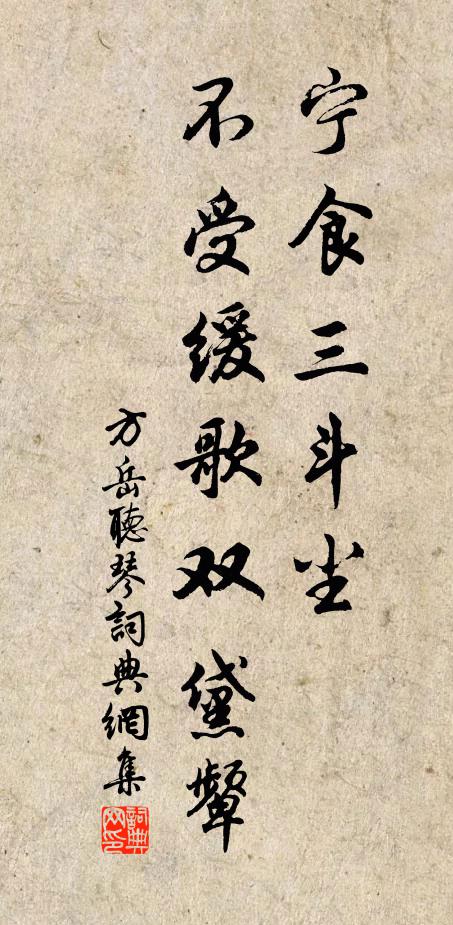 宁食三斗尘
不受缓歌双黛颦
方岳聽琴詞典網集
詞典网印